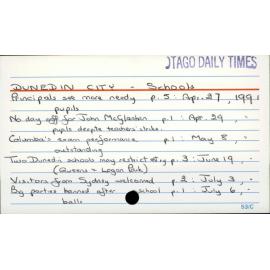 OTAGO DAILY TIMES
DUNEDIN CITY - Schools
Principals see more needy p. 5 : Apr. 27, 1991
pupils
No day off for John McGlashan p. 1 : Apr. 29, "
pupils despite teachers' strike.
Columba's exam performance p. 1 : May 8, "
outstanding
Two Dunedin schools may restrict p. 3 : June 19, "
(Queens + Logan Park)
Visitors from Sydney welcomed p. 2 : July 3, "
Big parties banned after school p. 1 : July 6, "
balls
53/C